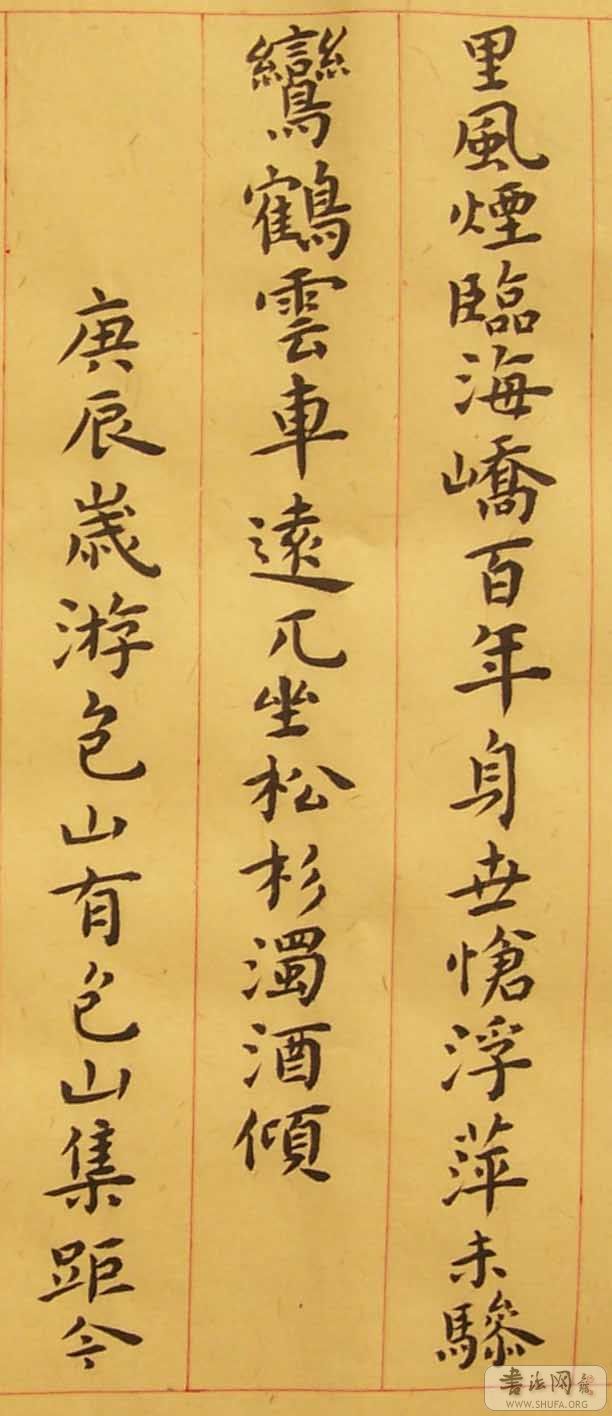 里風煙臨海嶠百年身世愴浮萍未驂
鸞鶴雲車遠兀坐松杉濁酒傾
庚辰歲游包山有包山集距今
书法网
WWW.SHUFA.ORG